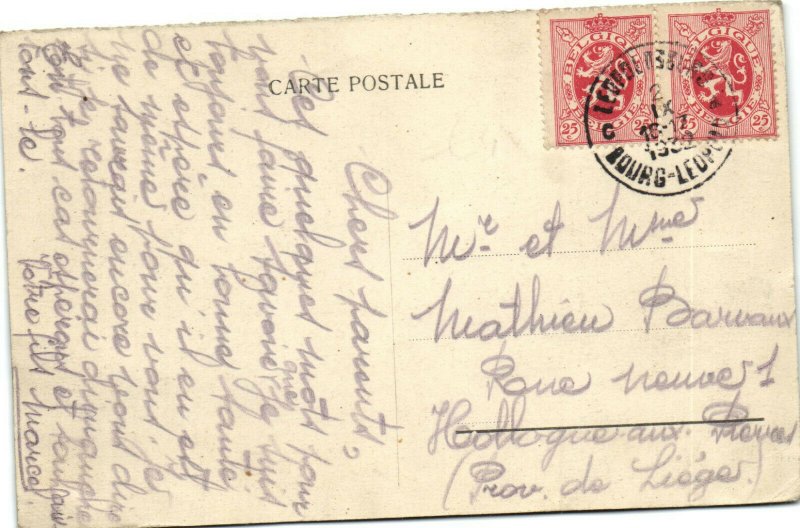 CARTE POSTALE
BELGIQUE
25 BELGIE 25
BELGIQUE
25 BELGIE 25
LEOPOLDSBURG
IX
1932
C
BOURG-LEOPOLD
Chers parents,
Ces quelques mots pour
vous faire savoir que je suis
toujours en bonne santé
et espère qu'il en est
de même pour vous. Je
ne saurais encore vous dire
si je retournerai dimanche
En tout cas espérons et
Votre fils Marcel.
Mr et Mme
Mathieu
Rue neuve 1
Hollogne-aux-Pierres
(Prov. de Liége)